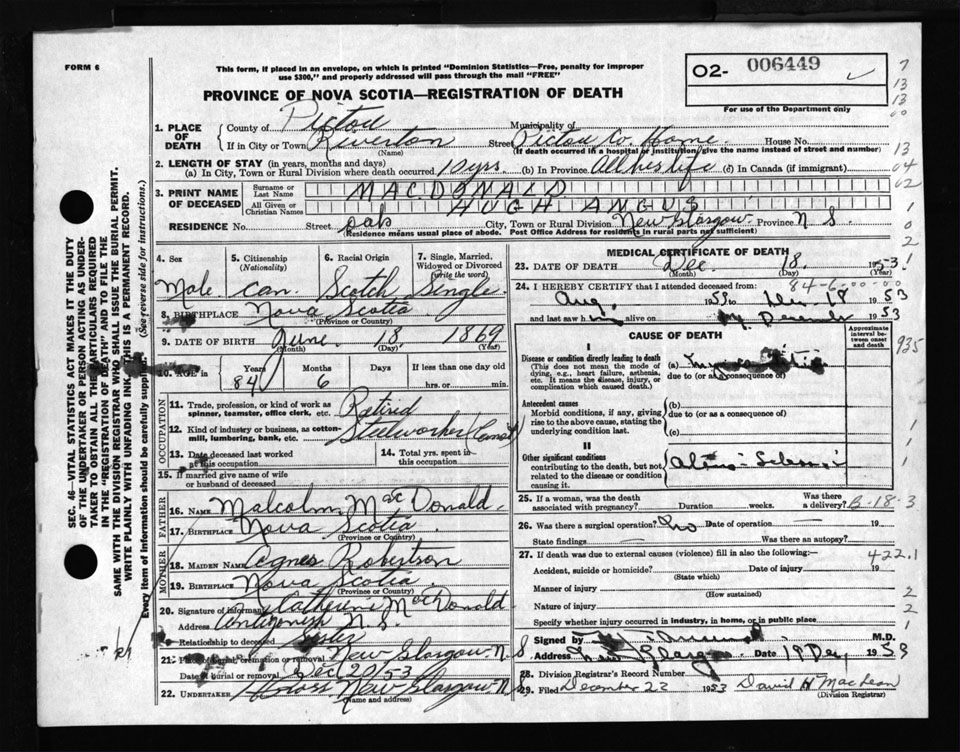 FORM 6
This form, if placed in an envelope, on which is printed "Dominion Statistics—Free, penalty for improper
use $300," and properly addressed will pass through the mail "FREE"
O2- 006449
PROVINCE OF NOVA SCOTIA—REGISTRATION OF DEATH
For use of the Department only
7
13
13
60
13
64
62
1
0
2
1
1. PLACE OF DEATH
County of Pictou Municipality of
If in City or Town Riverton Street Pictou Co Home House No.
(Name) (If death occurred in a hospital or institution, give the name instead of street and number)
2. LENGTH OF STAY (in years, months and days)
(a) In City, Town or Rural Division where death occurred 12 yrs. (b) In Province All his life (c) In Canada (if immigrant)
3. PRINT NAME OF DECEASED
Surname or Last Name MACDONALD
All Given or Christian Names HUGH ANGUS
RESIDENCE No. Street Oak City, Town or Rural Division New Glasgow Province N S.
(Residence means usual place of abode. Post Office Address for residents in rural parts not sufficient)
4. Sex Male
5. Citizenship (Nationality) Can.
6. Racial Origin Scotch
7. Single, Married, Widowed or Divorced (write the word) Single
8. BIRTHPLACE Nova Scotia
(Province or Country)
9. DATE OF BIRTH June 18 1869
(Month) (Day) (Year)
10. AGE in Years 84 Months 6 Days If less than one day old hrs. or min.
OCCUPATION
11. Trade, profession, or kind of work as spinner, teamster, office clerk, etc. Retired
12. Kind of industry or business, as cotton-mill, lumbering, bank, etc. Steelworker
13. Date deceased last worked at this occupation
14. Total yrs. spent in this occupation
15. If married give name of wife or husband of deceased
FATHER
16. NAME Malcolm MacDonald
17. BIRTHPLACE Nova Scotia
(Province or Country)
MOTHER
18. MAIDEN NAME Agnes Robertson
19. BIRTHPLACE Nova Scotia
(Province or Country)
20. Signature of informant Catherine MacDonald
Address Antigonish N.S.
Relationship to deceased Sister
21. Place of burial, cremation or removal New Glasgow N S
Date of burial or removal Dec 20/53
22. UNDERTAKER New Glasgow N S
(Name and address)
MEDICAL CERTIFICATE OF DEATH
23. DATE OF DEATH Dec. 18. 1953
(Month) (Day) (Year)
24. I HEREBY CERTIFY that I attended deceased from: 84-6-00-00
Aug. 1953 to Dec 18 1953
and last saw him alive on December 1953
CAUSE OF DEATH
Approximate interval between onset and death
935
I
Disease or condition directly leading to death
(This does not mean the mode of dying, e.g., heart failure, asthenia, etc. It means the disease, injury, or complication which caused death.)
(a)
due to (or as a consequence of)
Antecedent causes
Morbid conditions, if any, giving rise to the above cause, stating the underlying condition last.
(b)
due to (or as a consequence of)
(c)
II
Other significant conditions
contributing to the death, but not related to the disease or condition causing it.
25. If a woman, was the death associated with pregnancy? Duration weeks. Was there a delivery? B-18-3
26. Was there a surgical operation? No Date of operation 19
State findings Was there an autopsy?
27. If death was due to external causes (violence) fill in also the following:— 422.1
Accident, suicide or homicide? Date of injury 19
(State which)
Manner of injury
(How sustained)
Nature of injury
Specify whether injury occurred in industry, in home, or in public place
Signed by M.D.
Address New Glasgow Date 19 Dec, 1953
28. Division Registrar's Record Number
29. Filed December 22 1953 David H MacLean
(Division Registrar)
SEC. 46—VITAL STATISTICS ACT MAKES IT THE DUTY
OF THE UNDERTAKER OR PERSON ACTING AS UNDER-
TAKER TO OBTAIN ALL THE PARTICULARS REQUIRED
IN THE "REGISTRATION OF DEATH" AND TO FILE THE
SAME WITH THE DIVISION REGISTRAR WHO SHALL ISSUE THE BURIAL PERMIT.
WRITE PLAINLY WITH UNFADING INK. THIS IS A PERMANENT RECORD.
Every item of information should be carefully supplied. (See reverse side for instructions.)